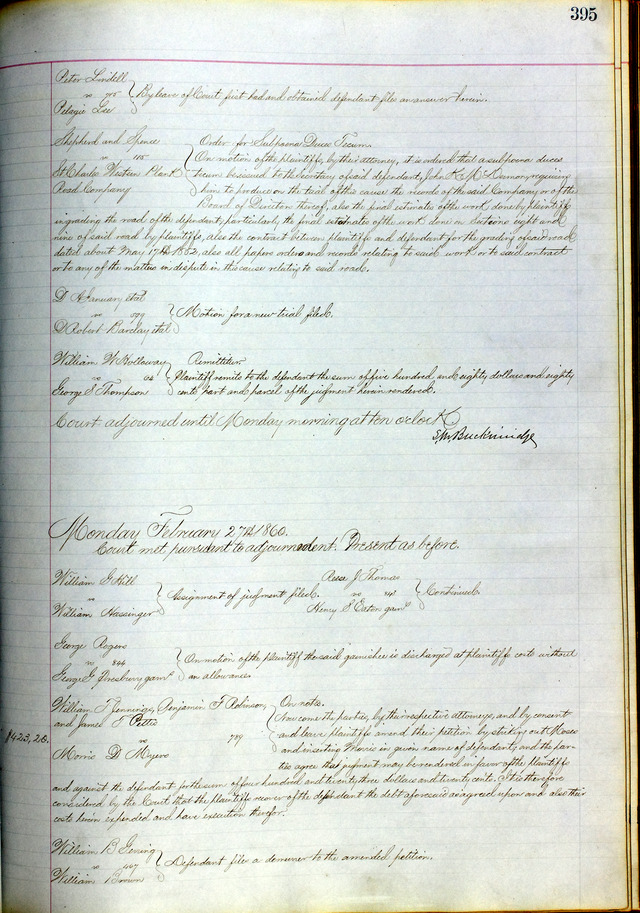 395
Peter Lindell
vs 705 } By leave of Court first had and obtained defendant files an answer herein.
Pelagie Lee
Shepherd and Spence Order for Subpoena Duces Tecum.
vs 115 On motion of the plaintiffs, by their attorney, it is ordered that a subpoena duces
St Charles Western Plank tecum be issued to the Secretary of said defendant, John K. McDermon, requiring
Road Company him to produce on the trial of this cause the records of the said Company or of the
Board of Directors thereof, also the final estimates of the work done by plaintiffs
in grading the road of the defendant, particularly, the final estimates of the work done on Sections eight and
nine of said road by plaintiffs, also the contract between plaintiffs and defendant for the grading of said road
dated about May 17th 1852, also all papers orders and records relating to said work or to said contract
or to any of the matters in dispute in this cause relating to said road.
D. A. January et al
vs 599 } Motion for a new trial filed.
D. Robert Barclay et al
William W. Holloway Remittitur.
vs 62 } Plaintiff remits to the defendant the sum of five hundred and eighty dollars and eighty
George S. Thompson cents part and parcel of the judgment herein rendered.
Court adjourned until Monday morning at ten o'clock
S. M. Breckinridge
Monday February 27th 1860.
Court met, pursuant to adjournment. Present as before.
William G. Hill Reese J. Thomas
vs } Assignment of judgment filed. vs } Continued.
William Hassinger Henry S. Eaton garn
George Rogers
vs 844 } On motion of the plaintiff the said garnishee is discharged at plaintiff's costs without
George G. Presbury garn an allowance.
William T. Jennings, Benjamin F. Robinson, On notes.
and James T. Pettis Now come the parties, by their respective attorneys, and by consent
$423,20. vs 789 and leave plaintiffs amend their petition by striking out Moses
Morris D. Myers and inserting Morris in given name of defendant, and the par-
ties agree that judgment may be rendered in favor of the plaintiffs
and against the defendant for the sum of four hundred and twenty three dollars and twenty cents. It is therefore
considered by the Court that the plaintiffs recover of the defendant the debt aforesaid as agreed upon and also their
costs herein expended and have execution therefor.
William B.
vs 407 } Defendant files a demurrer to the amended petition.
William Brown